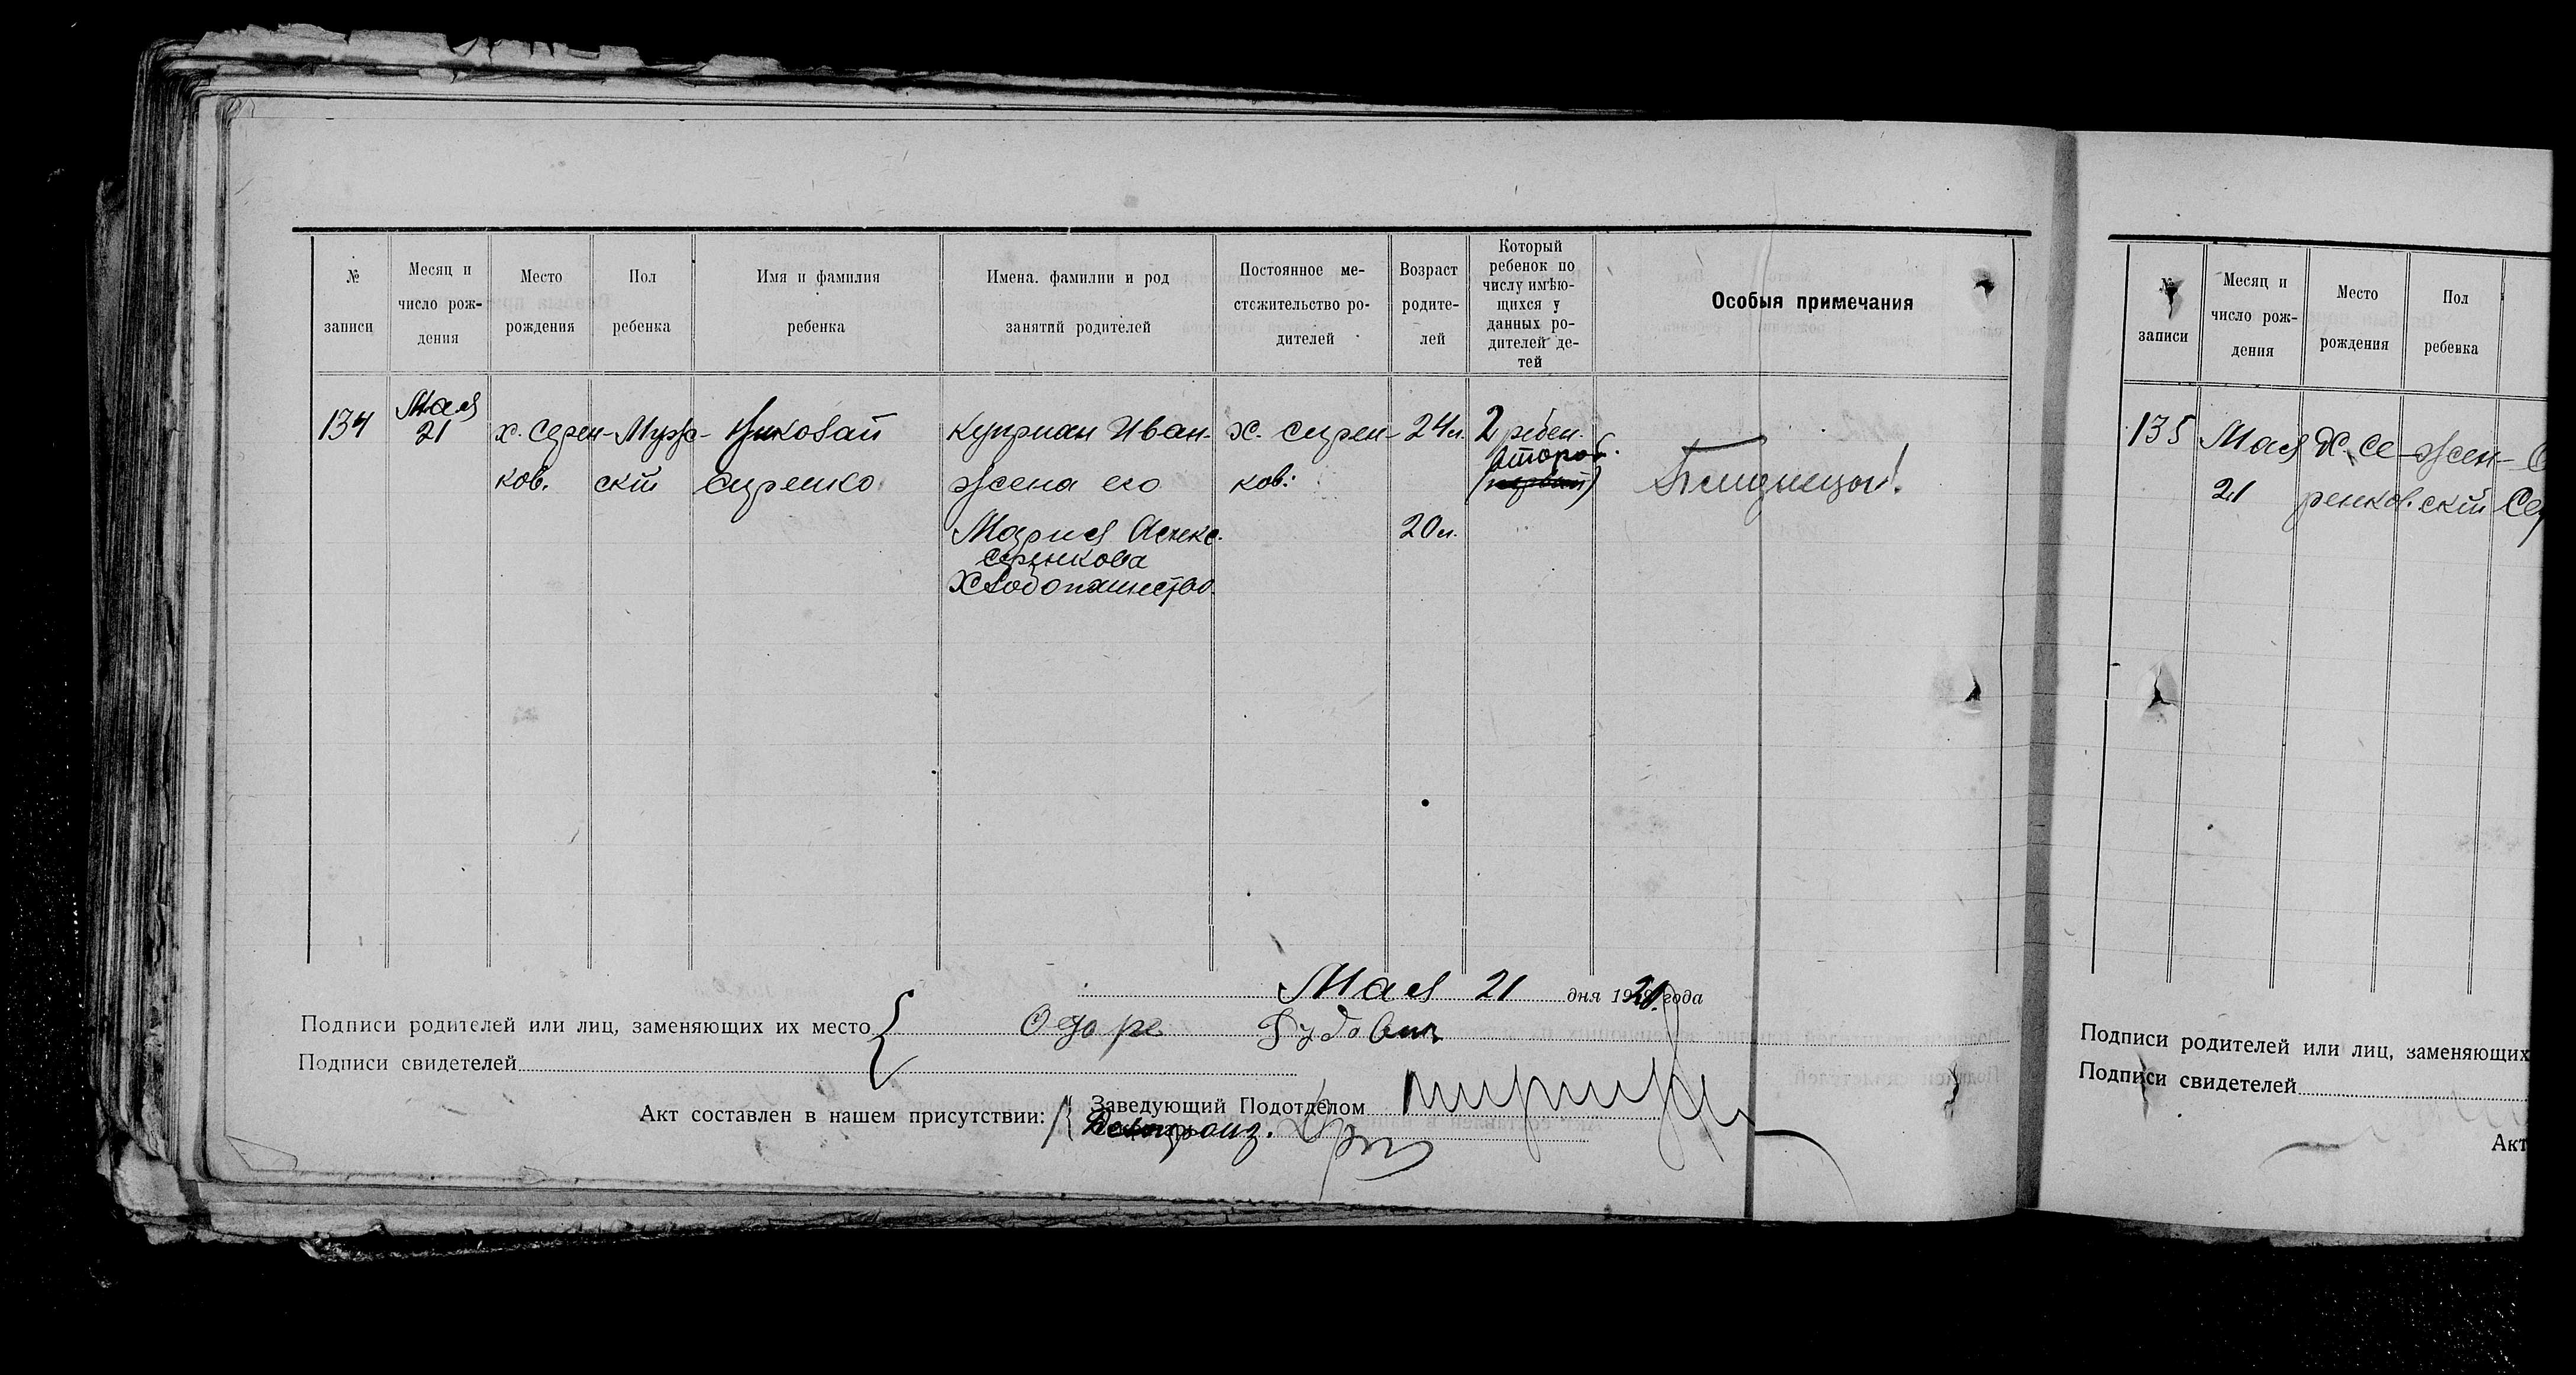 №
записи
Месяц и
число рож-
дения
Место
рождения
Пол
ребенка
Имя и фамилия
ребенка
Имена. фамилии и род
занятий родителей
Постоянное ме-
стожительство ро-
дителей
Возраст
родите-
лей
Который
ребенок по
числу имѣю-
щихся у
данных ро-
дителей де-
тей
Особыя примечания
134
Мая
21
х. Серен-
ков.
Мужс-
скій
Николай
Серенко
Куприан Иван.
Жена его
Мария Алекс.
Серенкова
Хлебопашество.
х. Серен-
ков.
24 л.
20 л.
2 ребен.
второй
(первый)
Мая 21 дня 1920 года
Подписи родителей или лиц, заменяющих их место
Подписи свидетелей
Акт составлен в нашем присутствии:
Заведующий Подотделом
Делопроиз.
№
записи
Месяц и
число рож-
дения
Место
рождения
Пол
ребенка
135
Мая
21
Х. Се-
ренков.
Жен-
скій
Подписи родителей или лиц, заменяющих
Подписи свидетелей
Акт